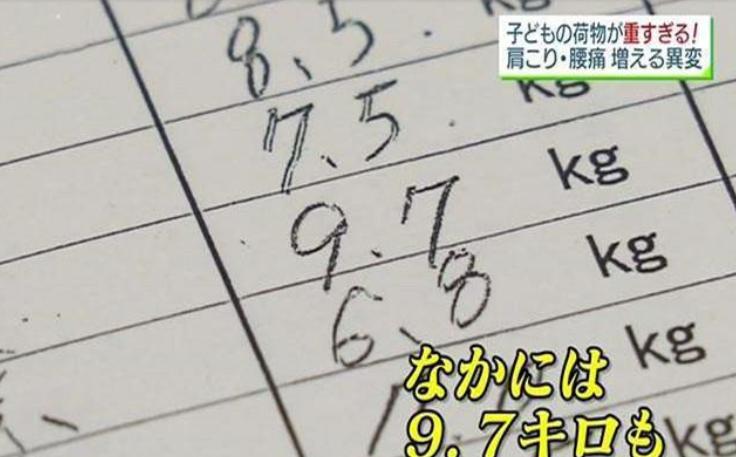 子どもの荷物が重すぎる!
肩こり・腰痛 増える異変
8.5 kg
7.5 kg
9.7 kg
6.8 kg
kg
なかには
9.7キロも